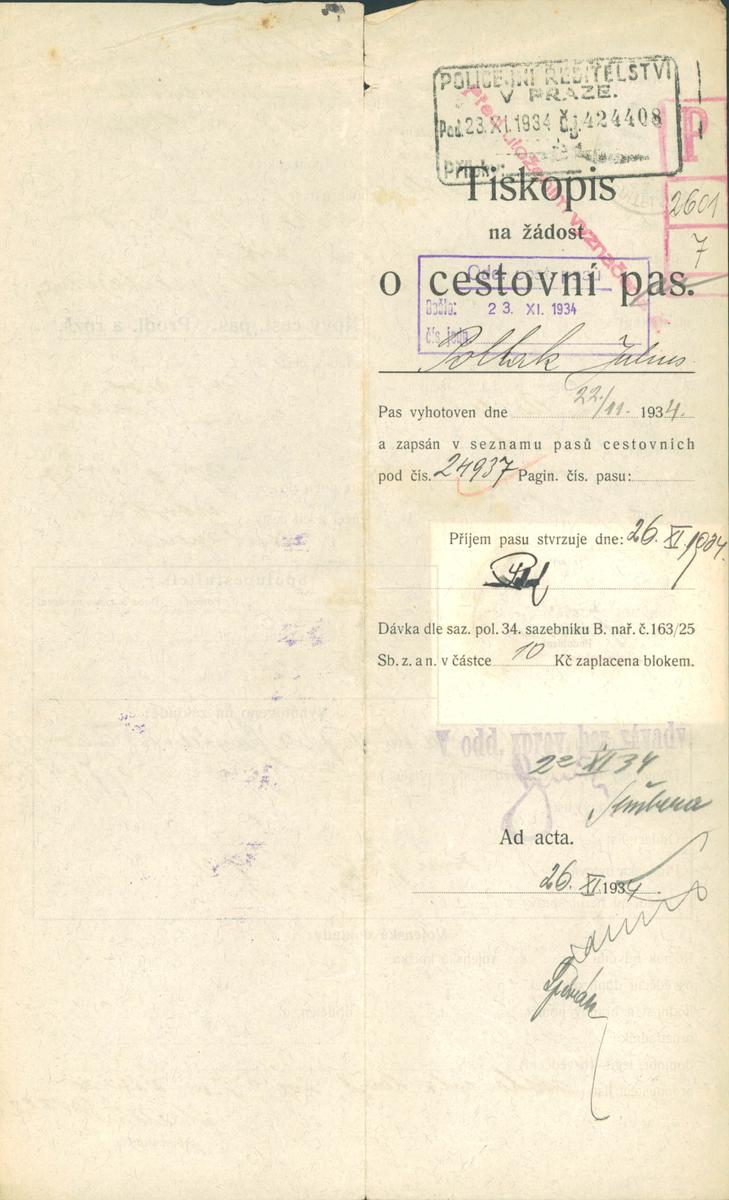 POLICEJNÍ ŘEDITELSTVÍ
V PRAZE.
Pod. 23. XI. 1934 Č.j. 424408
Příloh:
Před uložením
P
2601
7
Tiskopis
na žádost
o cestovní pas.
Odd. cest. pasů
Došlo: 23. XI. 1934
čís. jedn.
Pollak Julius
Pas vyhotoven dne 22/11. 1934.
a zapsán v seznamu pasů cestovních
pod čís. 24937 Pagin. čís. pasu:
Příjem pasu stvrzuje dne: 26. XI. 1934.
Dávka dle saz. pol. 34. sazebníku B. nař. č. 163/25
Sb. z. a n. v částce 10 Kč zaplacena blokem.
V odd. zprav. bez závady.
XI 34
Ad acta.
26. XI. 1934.